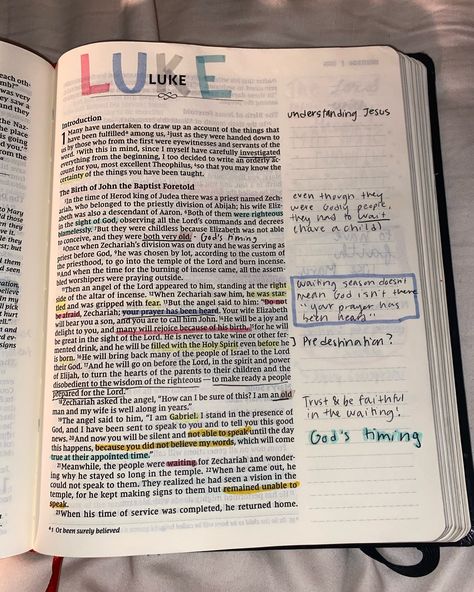 LUKE
LUKE
Introduction
1 Many have undertaken to draw up an account of the things that
have been fulfilled among us, ²just as they were handed down to
us by those who from the first were eyewitnesses and servants of the
word. ³With this in mind, since I myself have carefully investigated
everything from the beginning, I too decided to write an orderly ac-
count for you, most excellent Theophilus, ⁴so that you may know the
certainty of the things you have been taught.
The Birth of John the Baptist Foretold
⁵In the time of Herod king of Judea there was a priest named Zech-
ariah, who belonged to the priestly division of Abijah; his wife Eliz-
abeth was also a descendant of Aaron. ⁶Both of them were righteous
in the sight of God, observing all the Lord's commands and decrees
blamelessly. ⁷But they were childless because Elizabeth was not able
to conceive, and they were both very old. * God's timing
⁸Once when Zechariah's division was on duty and he was serving as
priest before God, ⁹he was chosen by lot, according to the custom of
the priesthood, to go into the temple of the Lord and burn incense.
¹⁰And when the time for the burning of incense came, all the assem-
bled worshipers were praying outside.
¹¹Then an angel of the Lord appeared to him, standing at the right
side of the altar of incense. ¹²When Zechariah saw him, he was star-
tled and was gripped with fear. ¹³But the angel said to him: “Do not
be afraid, Zechariah; your prayer has been heard. Your wife Elizabeth
will bear you a son, and you are to call him John. ¹⁴He will be a joy and
delight to you, and many will rejoice because of his birth, ¹⁵for he will
be great in the sight of the Lord. He is never to take wine or other fer-
mented drink, and he will be filled with the Holy Spirit even before he
is born. ¹⁶He will bring back many of the people of Israel to the Lord
their God. ¹⁷And he will go on before the Lord, in the spirit and power
of Elijah, to turn the hearts of the parents to their children and the
disobedient to the wisdom of the righteous — to make ready a people
prepared for the Lord.”
¹⁸Zechariah asked the angel, “How can I be sure of this? I am an old
man and my wife is well along in years.”
¹⁹The angel said to him, “I am Gabriel. I stand in the presence of
God, and I have been sent to speak to you and to tell you this good
news. ²⁰And now you will be silent and not able to speak until the day
this happens, because you did not believe my words, which will come
true at their appointed time.”
²¹Meanwhile, the people were waiting for Zechariah and wonder-
ing why he stayed so long in the temple. ²²When he came out, he
could not speak to them. They realized he had seen a vision in the
temple, for he kept making signs to them but remained unable to
speak.
²³When his time of service was completed, he returned home.
Or been surely believed
understanding Jesus
even though they
were Godly people,
they had to wait
(have a child)
waiting season doesn't
mean God isn't there
"your prayer has
been heard"
Predestination?
Trust & be faithful
in the waiting!
God's timing